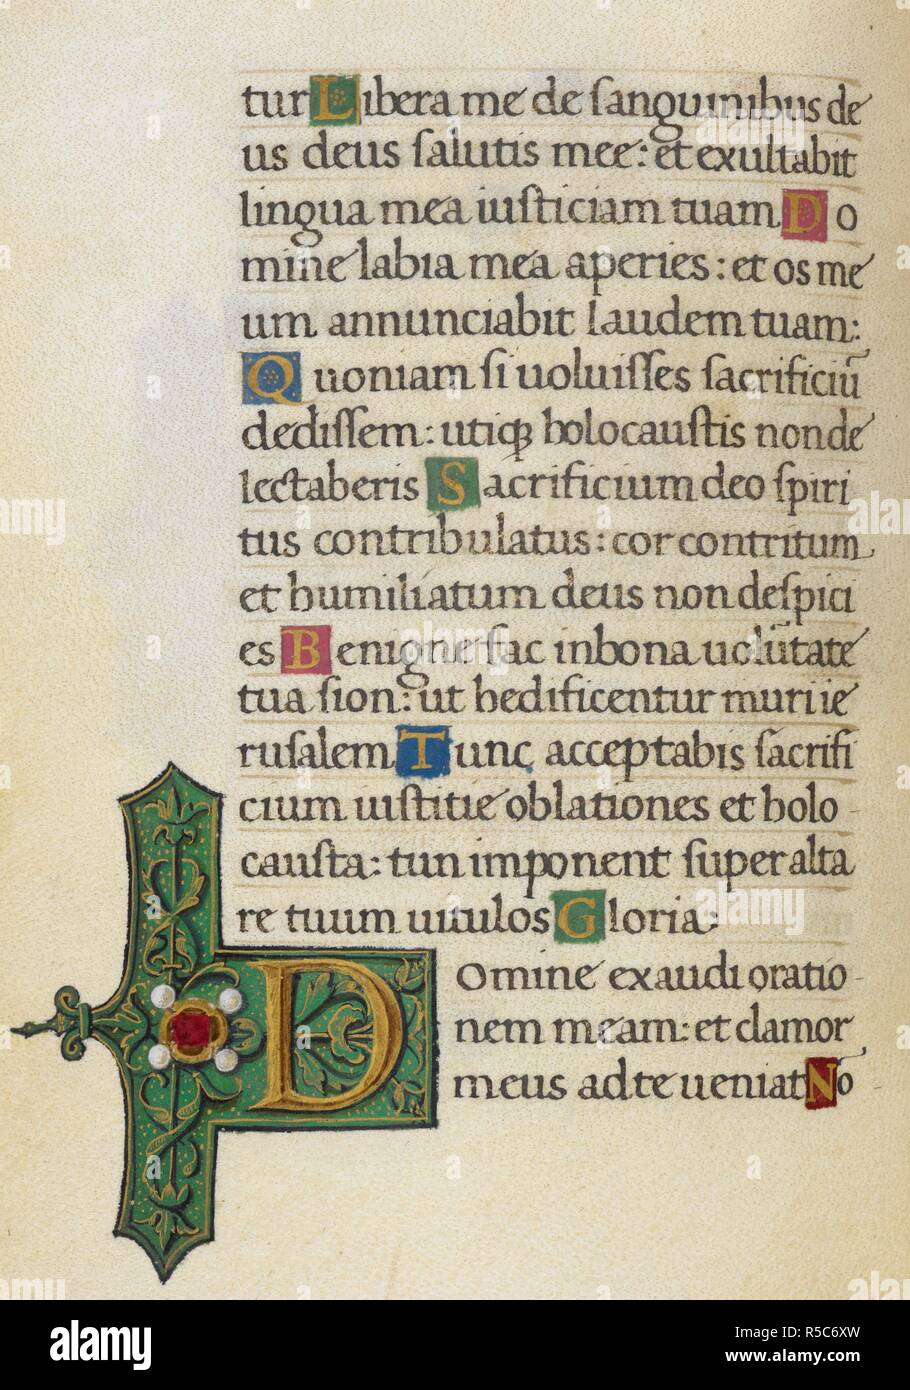 tur Libera me de sanguinibus de
us deus salutis mee: et exultabit
lingua mea iusticiam tuam Do
mine labia mea aperies: et os me
um annunciabit laudem tuam:
Quoniam si uoluisses sacrificiū
dedissem: utiqꝫ holocaustis non de
lectaberis Sacrificium deo spiri
tus contribulatus: cor contritum
et humiliatum deus non despici
es Benigne fac in bona uolūtate
tua sion: ut hedificentur muri ie
rusalem Tunc acceptabis sacrifi
cium iustitie oblationes et holo
causta: tun imponent super alta
re tuum uitulos Gloria:
Domine exaudi oratio
nem meam: et clamor
meus ad te ueniat No
alamy
Image ID: R5C6XW
www.alamy.com